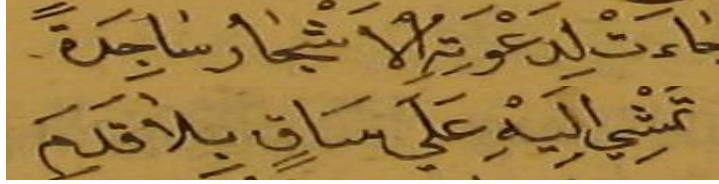 جَاءَتْ لِدَعْوَتِهِ الْأَشْجَارُ سَاجِدَةً
تَمْشِي إِلَيْهِ عَلَى سَاقٍ بِلَا قَدَمِ